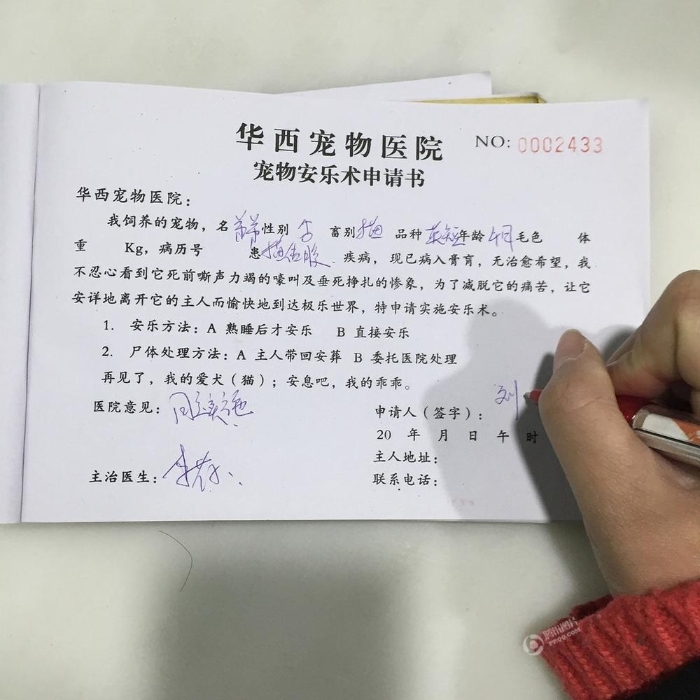 华西宠物医院
NO: 0002433
宠物安乐术申请书
华西宠物医院：
我饲养的宠物，名 性别 畜别 猫 品种 英短 年龄 毛色 体
重 Kg，病历号 患 疾病，现已病入膏肓，无治愈希望，我
不忍心看到它死前嘶声力竭的嚎叫及垂死挣扎的惨象，为了减脱它的痛苦，让它
安详地离开它的主人而愉快地到达极乐世界，特申请实施安乐术。
1. 安乐方法：A 熟睡后才安乐 B 直接安乐
2. 尸体处理方法：A 主人带回安葬 B 委托医院处理
再见了，我的爱犬（猫）；安息吧，我的乖乖。
医院意见：同意实施
申请人（签字）：刘
20 年 月 日 午 时
主人地址：
主治医生：
联系电话：